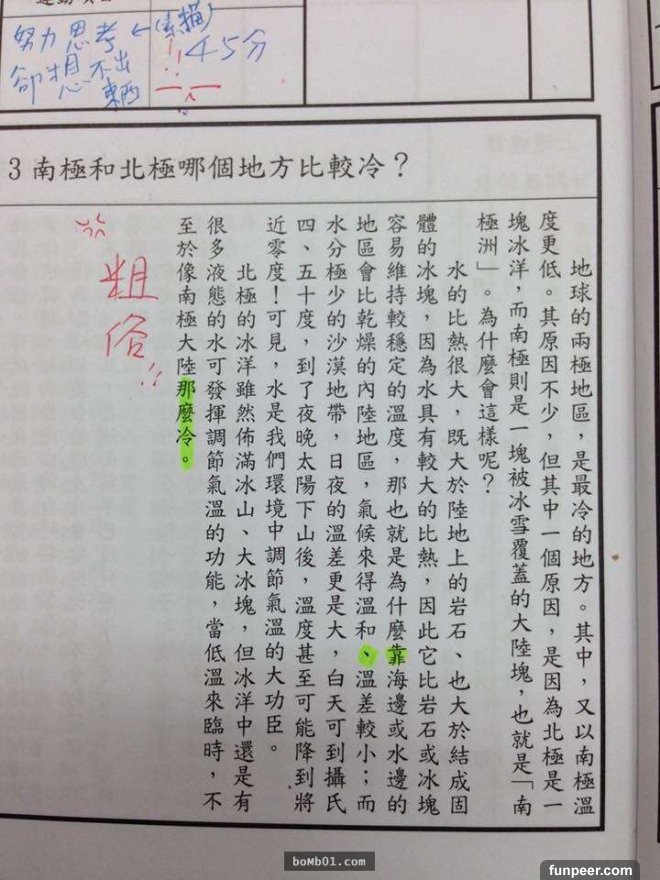 努力思考←(素描)
卻想不出
東西
!! 45分
3 南極和北極哪個地方比較冷?
地球的兩極地區,是最冷的地方。其中,又以南極溫
度更低。其原因不少,但其中一個原因,是因為北極是一
塊冰洋,而南極則是一塊被冰雪覆蓋的大陸塊,也就是「南
極洲」。為什麼會這樣呢?
水的比熱很大,既大於陸地上的岩石、也大於結成固
體的冰塊,因為水具有較大的比熱,因此它比岩石或冰塊
容易維持較穩定的溫度,那也就是為什麼靠海邊或水邊的
地區會比乾燥的內陸地區,氣候來得溫和、溫差較小;而
水分極少的沙漠地帶,日夜的溫差更是大,白天可到攝氏
四、五十度,到了夜晚太陽下山後,溫度甚至可能降到將
近零度!可見,水是我們環境中調節氣溫的大功臣。
北極的冰洋雖然佈滿冰山、大冰塊,但冰洋中還是有
很多液態的水可發揮調節氣溫的功能,當低溫來臨時,不
至於像南極大陸那麼冷。
粗俗!!
boMb01.com
funpeer.com